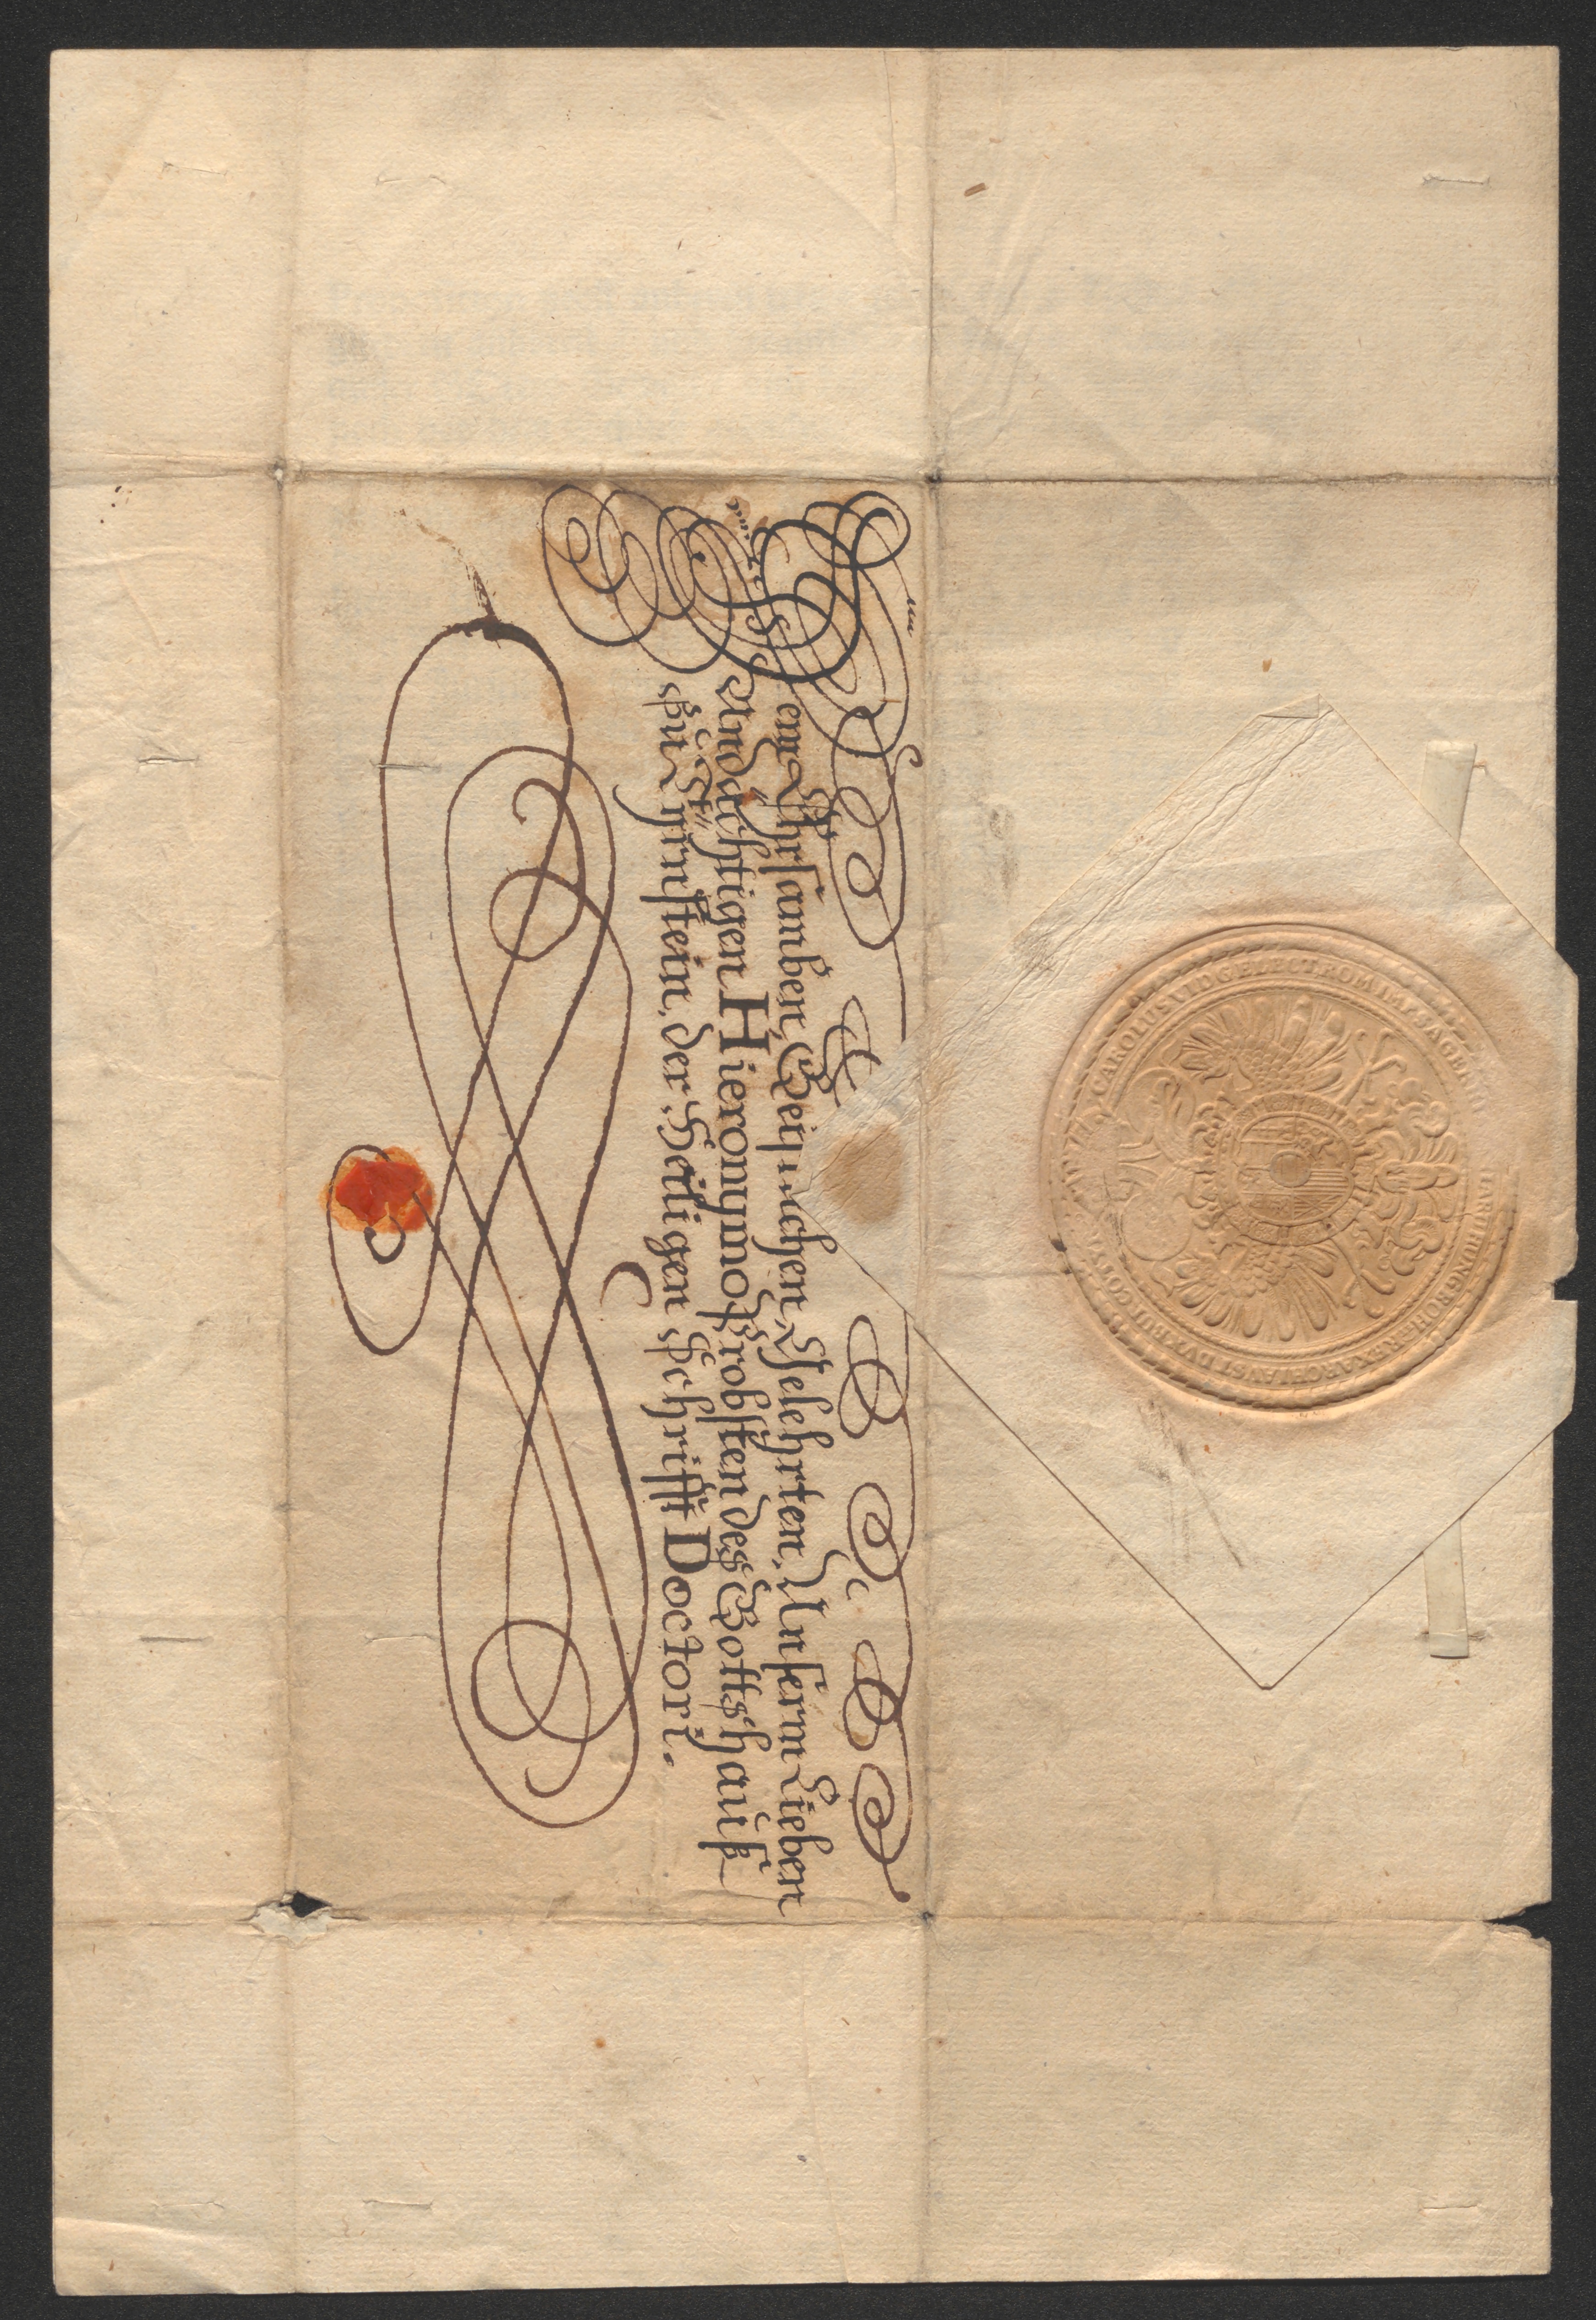 Dem Ehrsamben, Geistlichen, Gelehrten, Unserm Lieben
Andächtigen Hieronymo Probsten des Gottshauß
zu Tÿrnstein, der Heÿligen Schrifft Doctori.
CAROLUS VI D G ELECT ROM IMP S AUG ER
HUNG BOH REX ARCHI AUST DUX BU